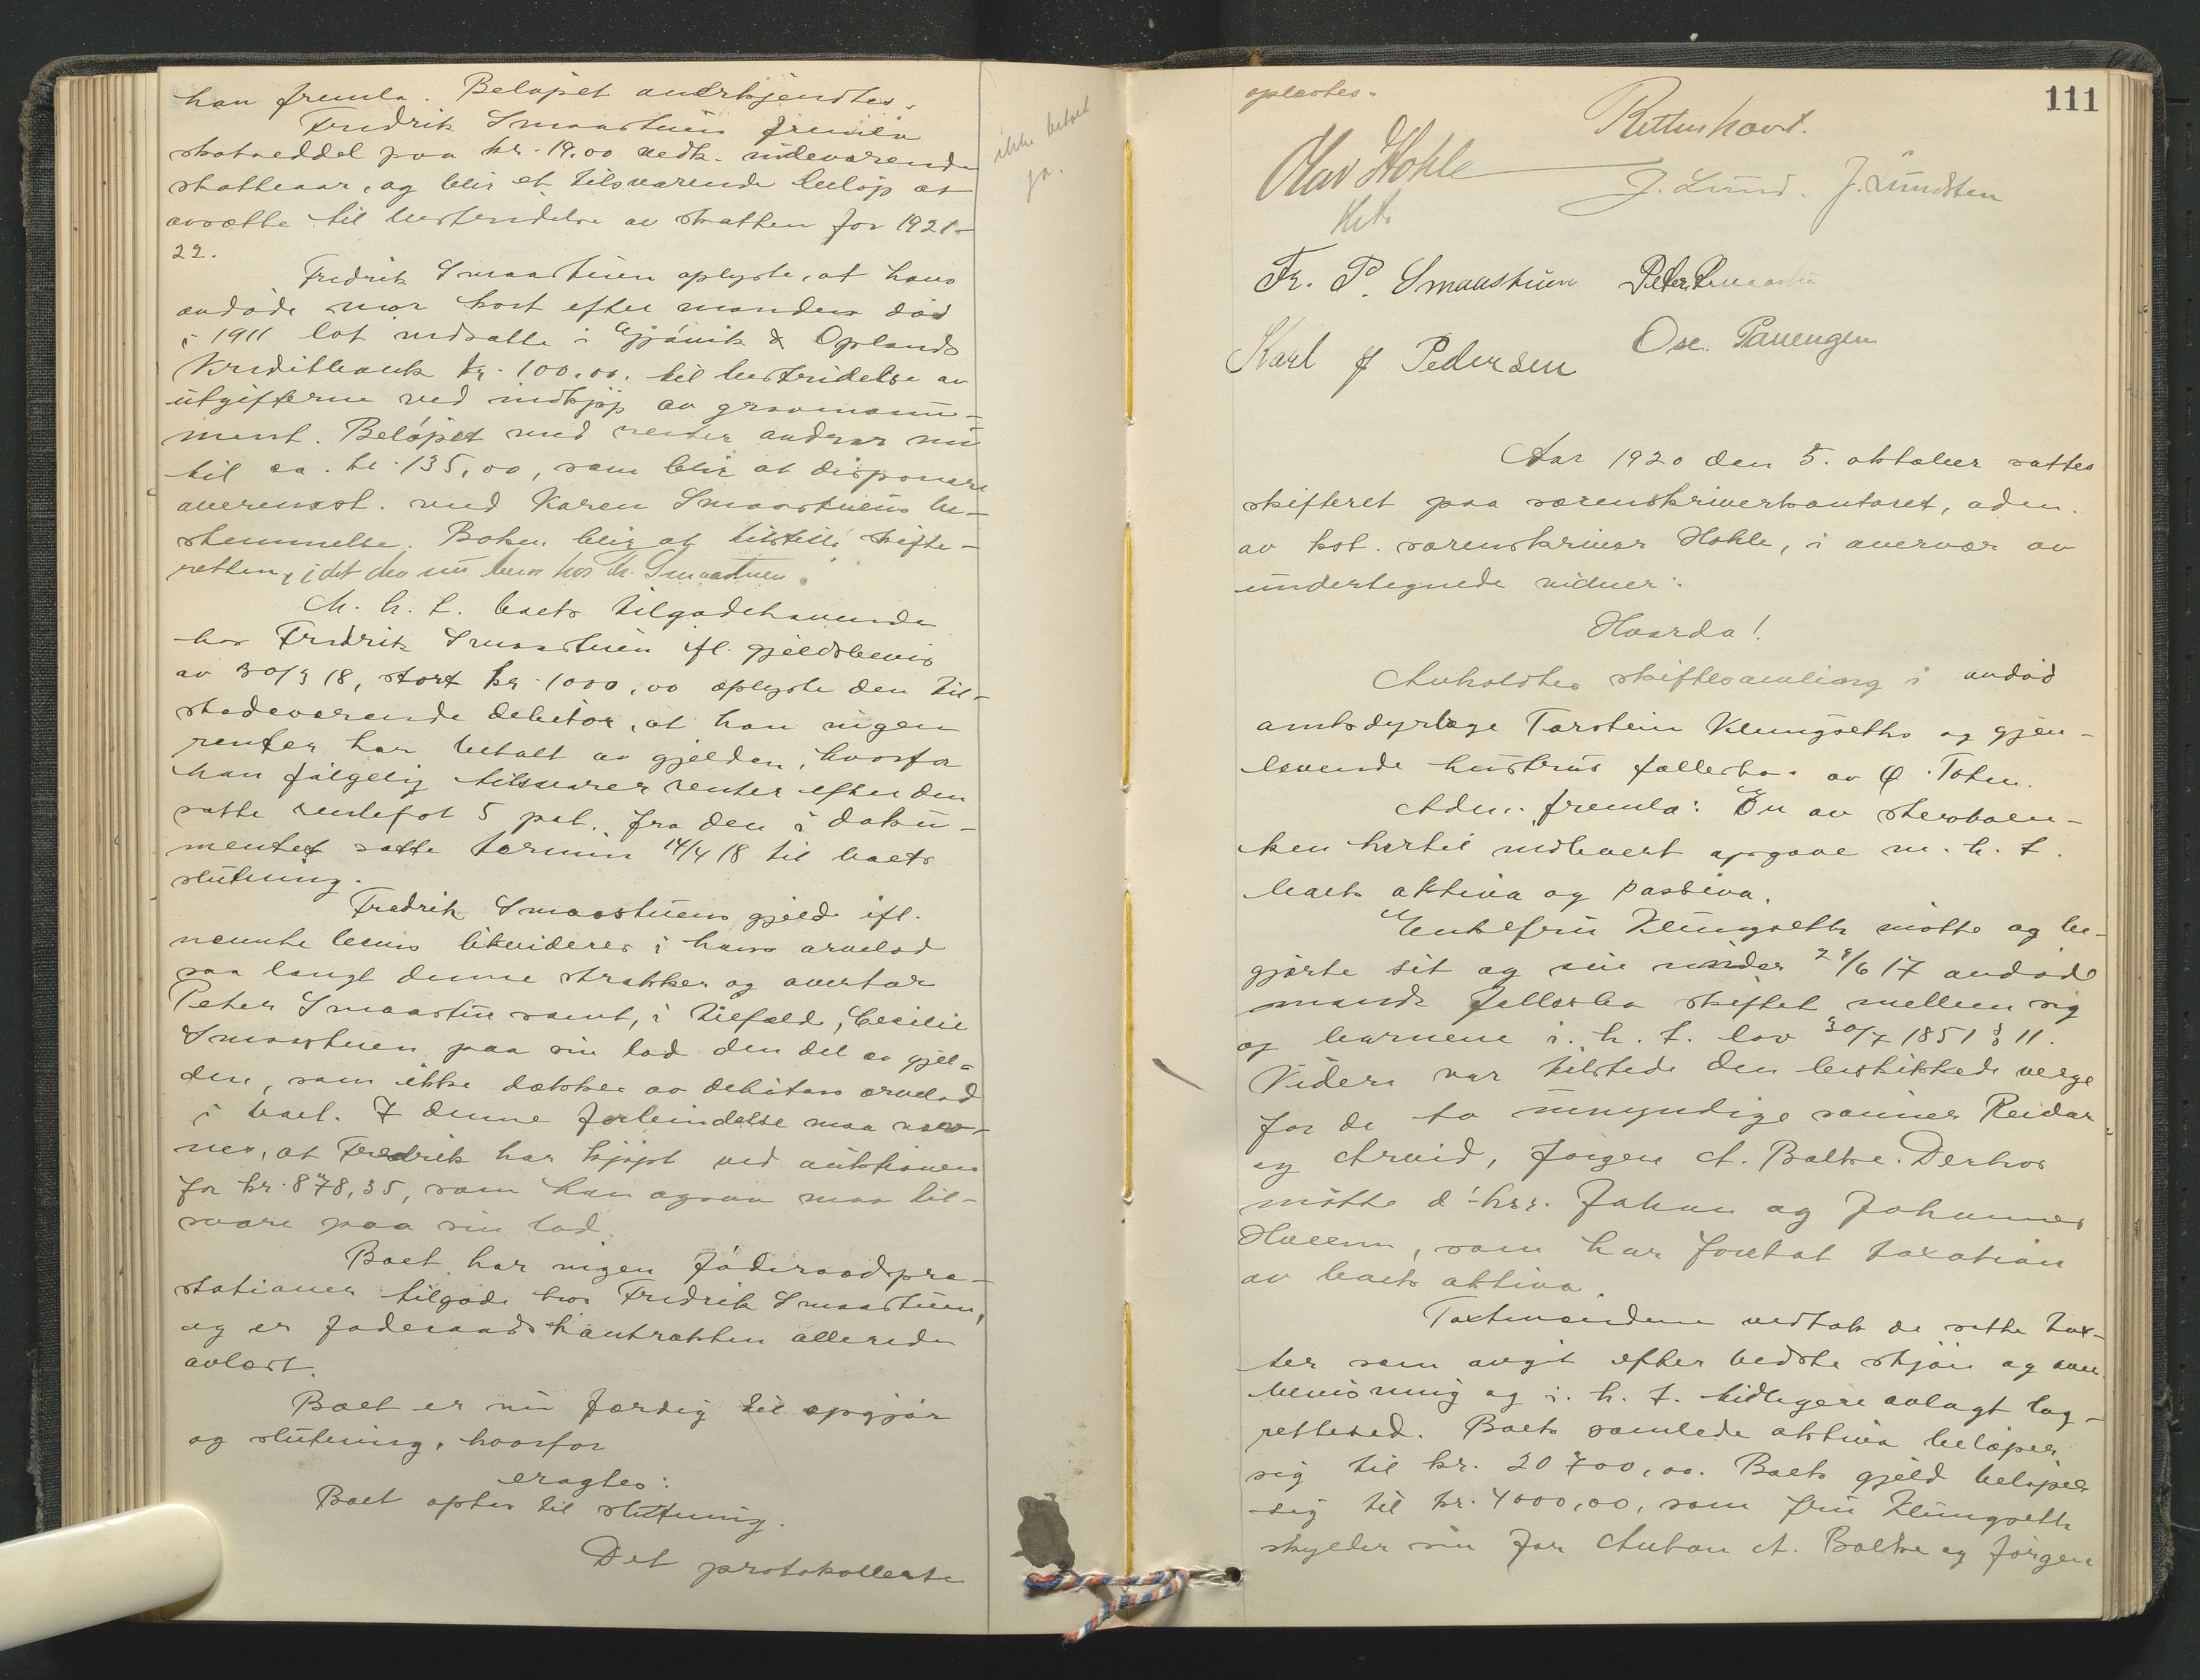 han fremla. Beløpet anerkjendtes.
Fredrik Smaastuen fremla
skatseddel paa kr. 19,00 vedk. indeværende
skatteaar, og blir et tilsvarende beløp at
avsætte til bestridelse av skatten for 1921-
22.
Fredrik Smaastuen oplyste, at hans
avdøde mor kort efter mandens død
i 1911 lot indsætte i Gjøvik & Oplands
Kreditbank kr. 100,00 til bestridelse av
utgifterne ved indkjøp av gravmonu-
ment. Beløpet med renter andrar nu
til ca. kr. 135,00, som blir at disponere
overensst. med Karen Smaastuens be-
stemmelse. Boken blir at tilstille skifte-
retten, idet den nu bero hos Fr. Smaastuen.
M. h. t. boets tilgodehavende
hos Fredrik Smaastuen ifl. gjeldsbevis
av 30/3 18, stort kr. 1000,00 oplyste den til-
stedeværende debitor, at han ingen
renter har betalt av gjelden, hvorfor
han følgelig tilsvarer renter efter den
satte rentefot 5 pct. fra den i doku-
mentet satte termin 14/4 18 til boets
slutning.
Fredrik Smaastuens gjeld ifl.
nævnte bevis likvideres i hans arvelod
saa langt denne strækker og overtar
Peter Smaastuen samt, i tilfælde, Cecilie
Smaastuen paa sin lod den del av gjel-
den, som ikke dækkes av debitors arvelod
i boet. I denne forbindelse maa næv-
nes, at Fredrik har kjøpt ved auktionen
for kr. 878,35, som han ogsaa maa til-
svare paa sin lod.
Boet har ingen føderaadspre-
stationer tilgode hos Fredrik Smaastuen,
og er føderaadskontrakten allerede
avlæst.
Boet er nu færdig til opgjør
og slutning, hvorfor
eragtes:
Boet optas til slutning.
Det protokollerte
ikke betalt
ja.
111
oplæstes.
Retten hævt.
Olav Hohle
kst.
J. Lund. J. Lundsten
Fr. P. Smaastuen Peter Smaastuen
Karl J Pedersen Ose. Pauengen
Aar 1920 den 5. oktober sattes
skifteret paa sorenskriverkontoret, adm.
av kst. sorenskriver Hohle, i overvær av
undertegnede vidner:
Hvorda!
Anholdtes skiftesamling i avdød
amtsdyrlæge Torstein Klungseths og gjen-
levende hustrus fællesbo av Ø. Toten.
Adm. fremla: En av sterboen-
ken hertil indlevert opgave m. h. t.
boets aktiva og passiva.
Enkefru Klungseth møtte og be-
gjærte sit og sin under 28/6 17 avdøde
mands fællesbo skiftet mellem sig
og barnene i. h. t. lov 30/7 1851 § 11.
Videre var tilstede den beskikkede verge
for de to umyndige sønner Reidar
og Arvid, Jørgen A. Balke. Derhos
møtte d'hrr. Johan og Johannes
Hveem, som har foretat taxation
av boets aktiva.
Taxtmændene vedtok de satte tax-
ter som avgit efter bedste skjøn og over-
bevisning og i. h. t. tidligere avlagt lag-
retteed. Boets samlede aktiva beløper
sig til kr. 20 700,00. Boets gjeld beløper
sig til kr. 4000,00, som fru Klungseth
skylder sin far Anton A. Balke og Jørgen